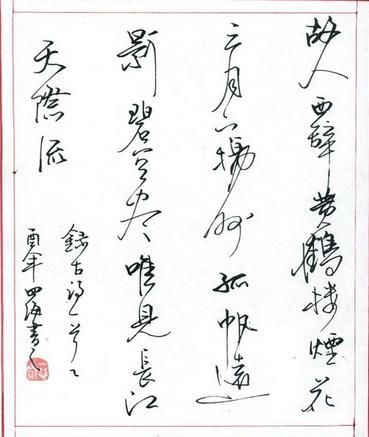 故人西辭黄鶴楼煙花
三月下揚州孤帆遠
影碧空尽唯見長江
天際流
録古詩一首
酉年四海書